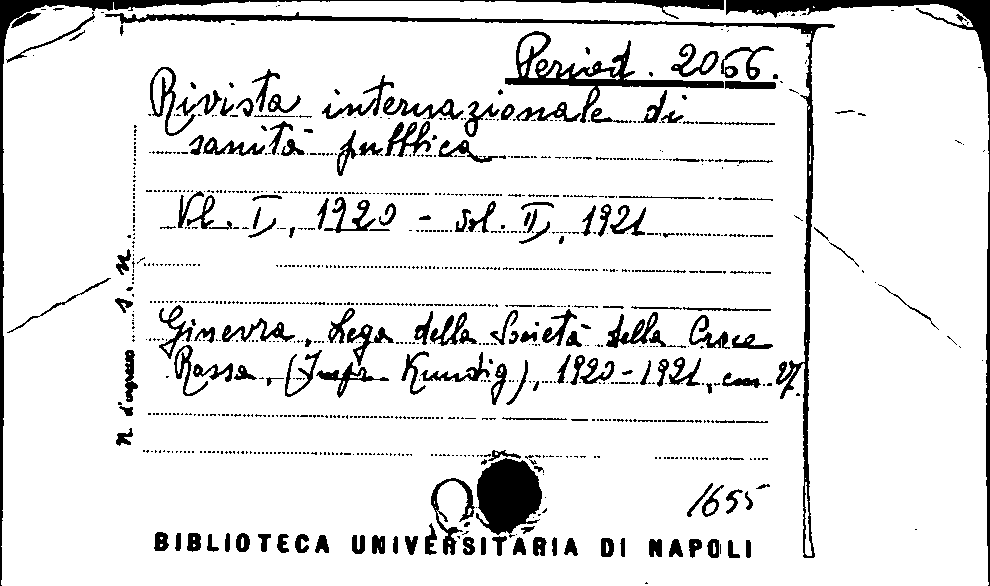 Period. 2066.
Rivista internazionale di
sanità pubblica
Vol. I, 1920 - vol. II, 1921.
Ginevra, Lega della Società della Croce
Rossa, (Impr. Kundig), 1920-1921, cm. 27.
N. d'ingresso s. n.
1655
BIBLIOTECA UNIVERSITARIA DI NAPOLI